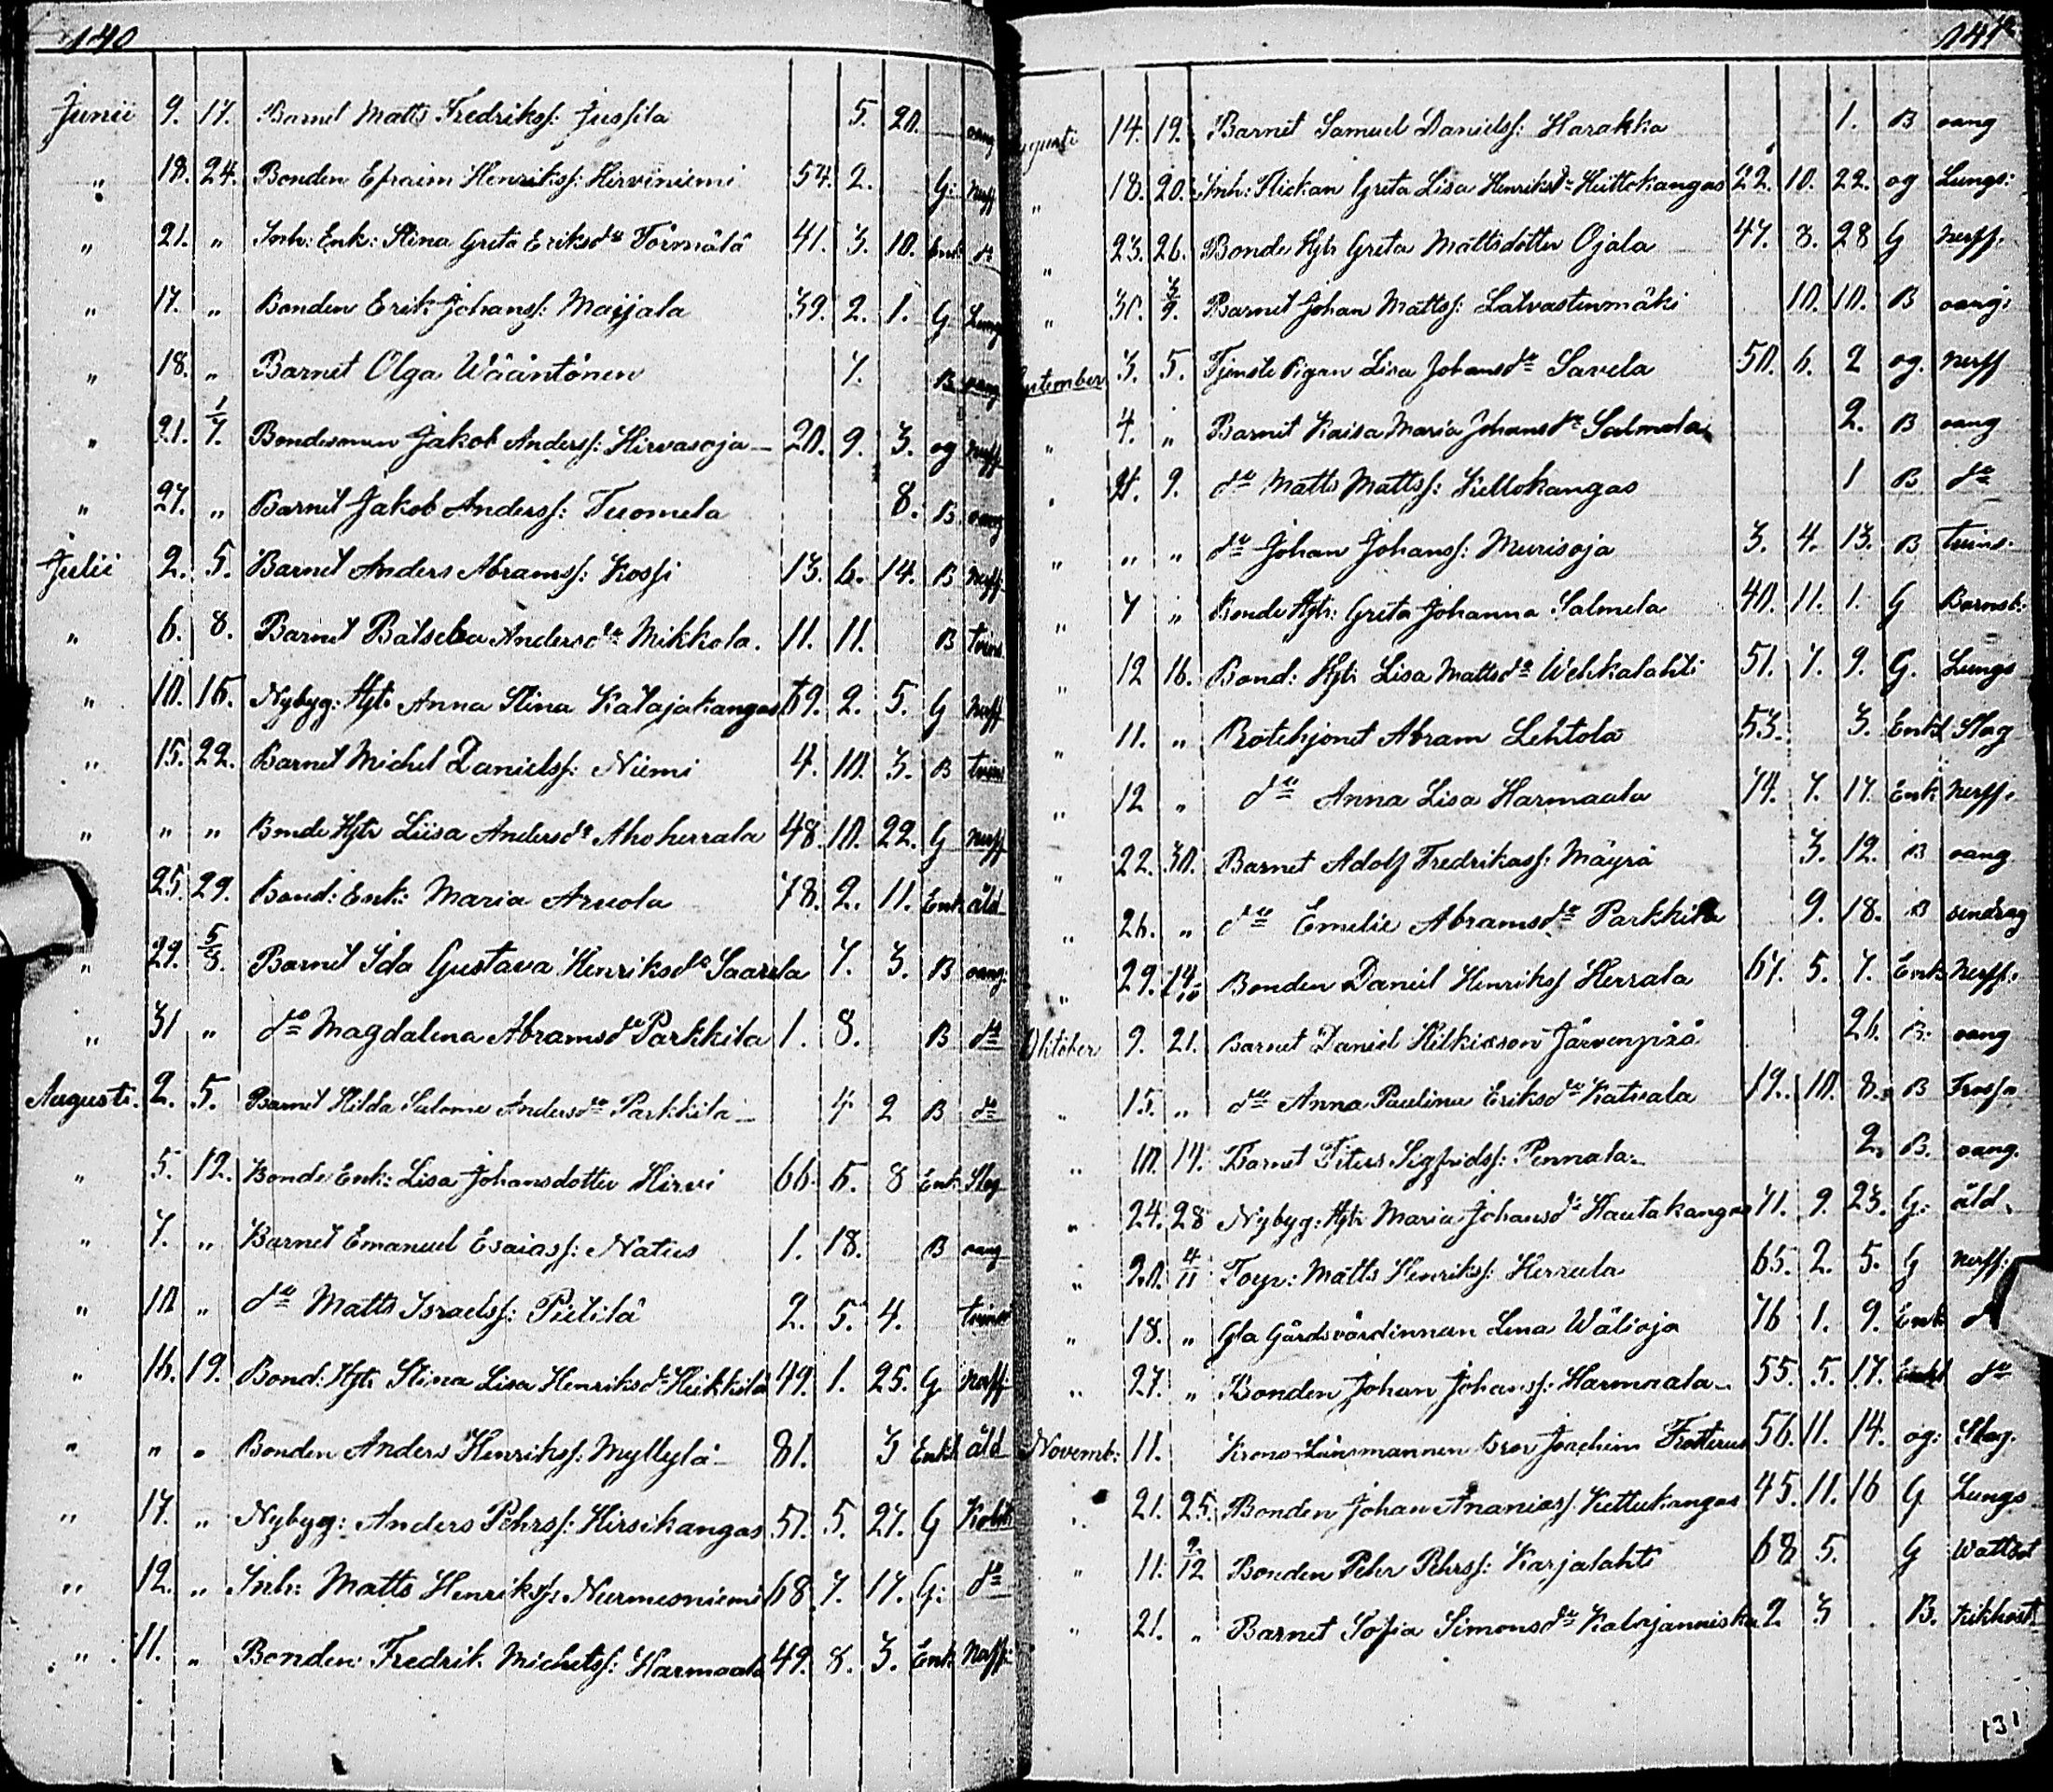 140
Junii 9. 17. Barnet Matts Fredrikss: Jussila 5. 20. oang
" 18. 24. Bonden Efraim Henrikss: Hirviniemi 54. 2. G: Nerff
" 21. " Inh: Enk: Stina Greta Eriksdr Törmälä 41. 3. 10. Enk: do
" 17. " Bonden Erik Johanss: Maijala 39. 2. 1. G Lung
" 18. " Barnet Olga Wääntönen 7. B oang
" 21. 1/7. Bondesonen Jakob Anderss: Hirvasoja 20. 9. 3. og Nerff
" 27. " Barnet Jakob Anderss: Tuomela 8. B oang
Julii 2. 5. Barnet Anders Abramss: Kossi 13. 6. 14. B Nerff
" 6. 8. Barnet Batseba Andersdr Mikkola. 11. 11. B tvins
" 10. 16. Nybyg: Hstr Anna Stina Katajakangas 69. 2. 5. G Nerff
" 15. 22. Barnet Michel Danielss: Niemi 4. 10. 3. B tvins
" " " Bonde Hstr Liisa Andersdr Ahoherrala 48. 10. 22. G Nerff
25. 29. Bond: Enk: Maria Aruola 78. 2. 11. Enk äld
" 29. 5/8. Barnet Ida Gustava Henriksdr Saarela 7. 3. B oang.
" 31 " do Magdalena Abramsdr Parkkila 1. 8. B do
Augusti. 2. 5. Barnet Hilda Salome Andersdr Parkkila 4 2 B do
" 5. 12. Bonde Enk: Lisa Johansdotter Hirvi 66. 6. 8 Enk Slag
" 7. " Barnet Emanuel Esaiass: Natus 1. 18. B oang
" 10 " do Matts Israelss: Pietilä 2. 5. 4. tvinsot
" 16. 19. Bond: Hstr Stina Lisa Henriksdr Heikkilä 49. 1. 25. G Nerff
" " " Bonden Anders Henrikss: Myllylä 81. 3 Enkl äld
" 17. " Nybyg: Anders Pehrss: Hirsikangas 51. 5. 27. G
" 12. " Inh: Matts Henrikss: Nurmesniemi 68. 7. 17. G: do
" 11. " Bonden Fredrik Michelss: Harmaala 49. 8. 3. Enk Nerff:
141
Augusti 14. 19. Barnet Samuel Danielss: Harakka 1. B oang
" 18. 20. Inh: Flickan Greta Lisa Henriksdr Huttokangas 22. 10. 22. og Lungs:
" 23. 26. Bonde Hstr Greta Mattsdotter Ojala 47. 8. 28 G Nerff.
" 31. 3/9. Barnet Johan Mattss: Latvastenmäki 10. 10. B oang:
September 3. 5. Tjenste Pigan Lisa Johansdr Savela 50. 6. 2 og. Nerff
" 4. " Barnet Kaisa Maria Johansdr Salmela 2. B oang
" 9. do Matts Mattss: Kellokangas 1 B do
" " " do Johan Johanss: Murisoja 3. 4. 13. B tvins.
" 7 " Bonde Hstr: Greta Johanna Salmela 40. 11. 1. G Barnsb:
" 12 16. Bond: Hstr Lisa Mattsdr Wehkalahti 51. 7. 9. G. Lungs
" 11. " Rotehjonet Abram Lehtola 53. 3. Enkl Slag
" 12 " do Anna Lisa Harmaala 74. 7. 17. Enk Nerff.
" 22. 30. Barnet Adolf Fredrikass: Mäyrä 3. 12. B oang
" 26. " do Emelie Abramsdr Parkkila 9. 18. B sendrag
" 29. 14/10 Bonden Daniel Henrikss Herrala 67. 5. 7. Enk Nerff.
Oktober 9. 21. Barnet Daniel Hilkiasson Järvenpää 26. B. oang
" 15. " do Anna Paulina Eriksdr Katvala 19. 10. 8. B Frossa
" 10. 14. Barnet Titus Sigfridss: Pennala. 2. B. oang.
" 24. 28 Nybyg: Hstr Maria Johansdr Hautakangas 71. 9. 23. G: äld.
" 20. 4/11 Torp: Matts Henrikss: Herrala 65. 2. 5. G Nerff:
" 18. " Gla Gårdsvärdinnan Lena Wälioja 76 1. 9. Enk d
" 27. " Bonden Johan Johanss: Harmaala 55. 5. 17. Enkl do
Novemb: 11. Krono Länsmannen Bror Joachim Frosterus 56. 11. 14. og: Slag.
" 21. 25. Bonden Johan Ananiass Kuttukangas 45. 11. 16 G Lungs
" 11. 2/12 Bonden Pehr Pehrss: Karjalahti 68 5. G Wattsot
" 21. " Barnet Sofia Simonsdr Kalajanniska 2. 3 B. Kikhost
131